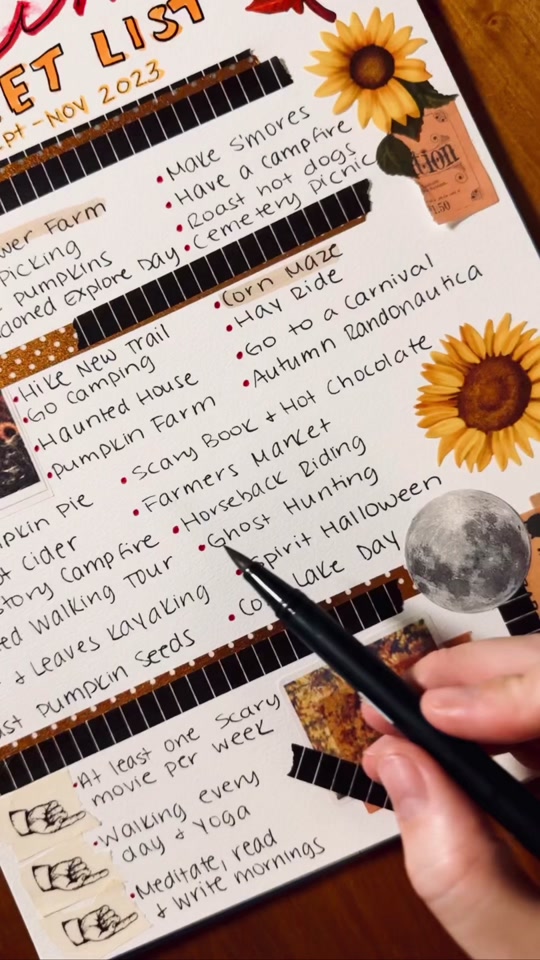 ET LIST
ept - NOV 2023
wer Farm
Picking
Pumpkins
cloned Explore Day
Make S'mores
Have a campfire
Roast hot dogs
Cemetery Picnic
tion
1.50
Hike New Trail
Go Camping
Haunted House
Pumpkin Farm
Corn Maze
Hay Ride
Go to a Carnival
Autumn Randonautica
Scary Book & Hot Chocolate
Farmers Market
Horseback Riding
Ghost Hunting
Spirit Halloween
Lake Day
mpkin Pie
ot Cider
story Campfire
ed Walking Tour
& Leaves Kayaking
ast Pumpkin Seeds
At least one scary
movie per week
Walking every
day & Yoga
Meditate, read
& write mornings